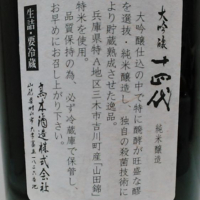 大吟醸
十四代
純米醸造
大吟醸仕込の中で特に醗酵が旺盛な醪
を選抜・純米醸造し、独自の殺菌技術に
より貯蔵熟成させた逸品。
兵庫県特A地区三木市吉川町産「山田錦」
特米を使用。
品質保持の為、必ず冷蔵庫で保管し、
お早めにお召し上がり下さい。
生詰・要冷蔵
高木酒造株式会社